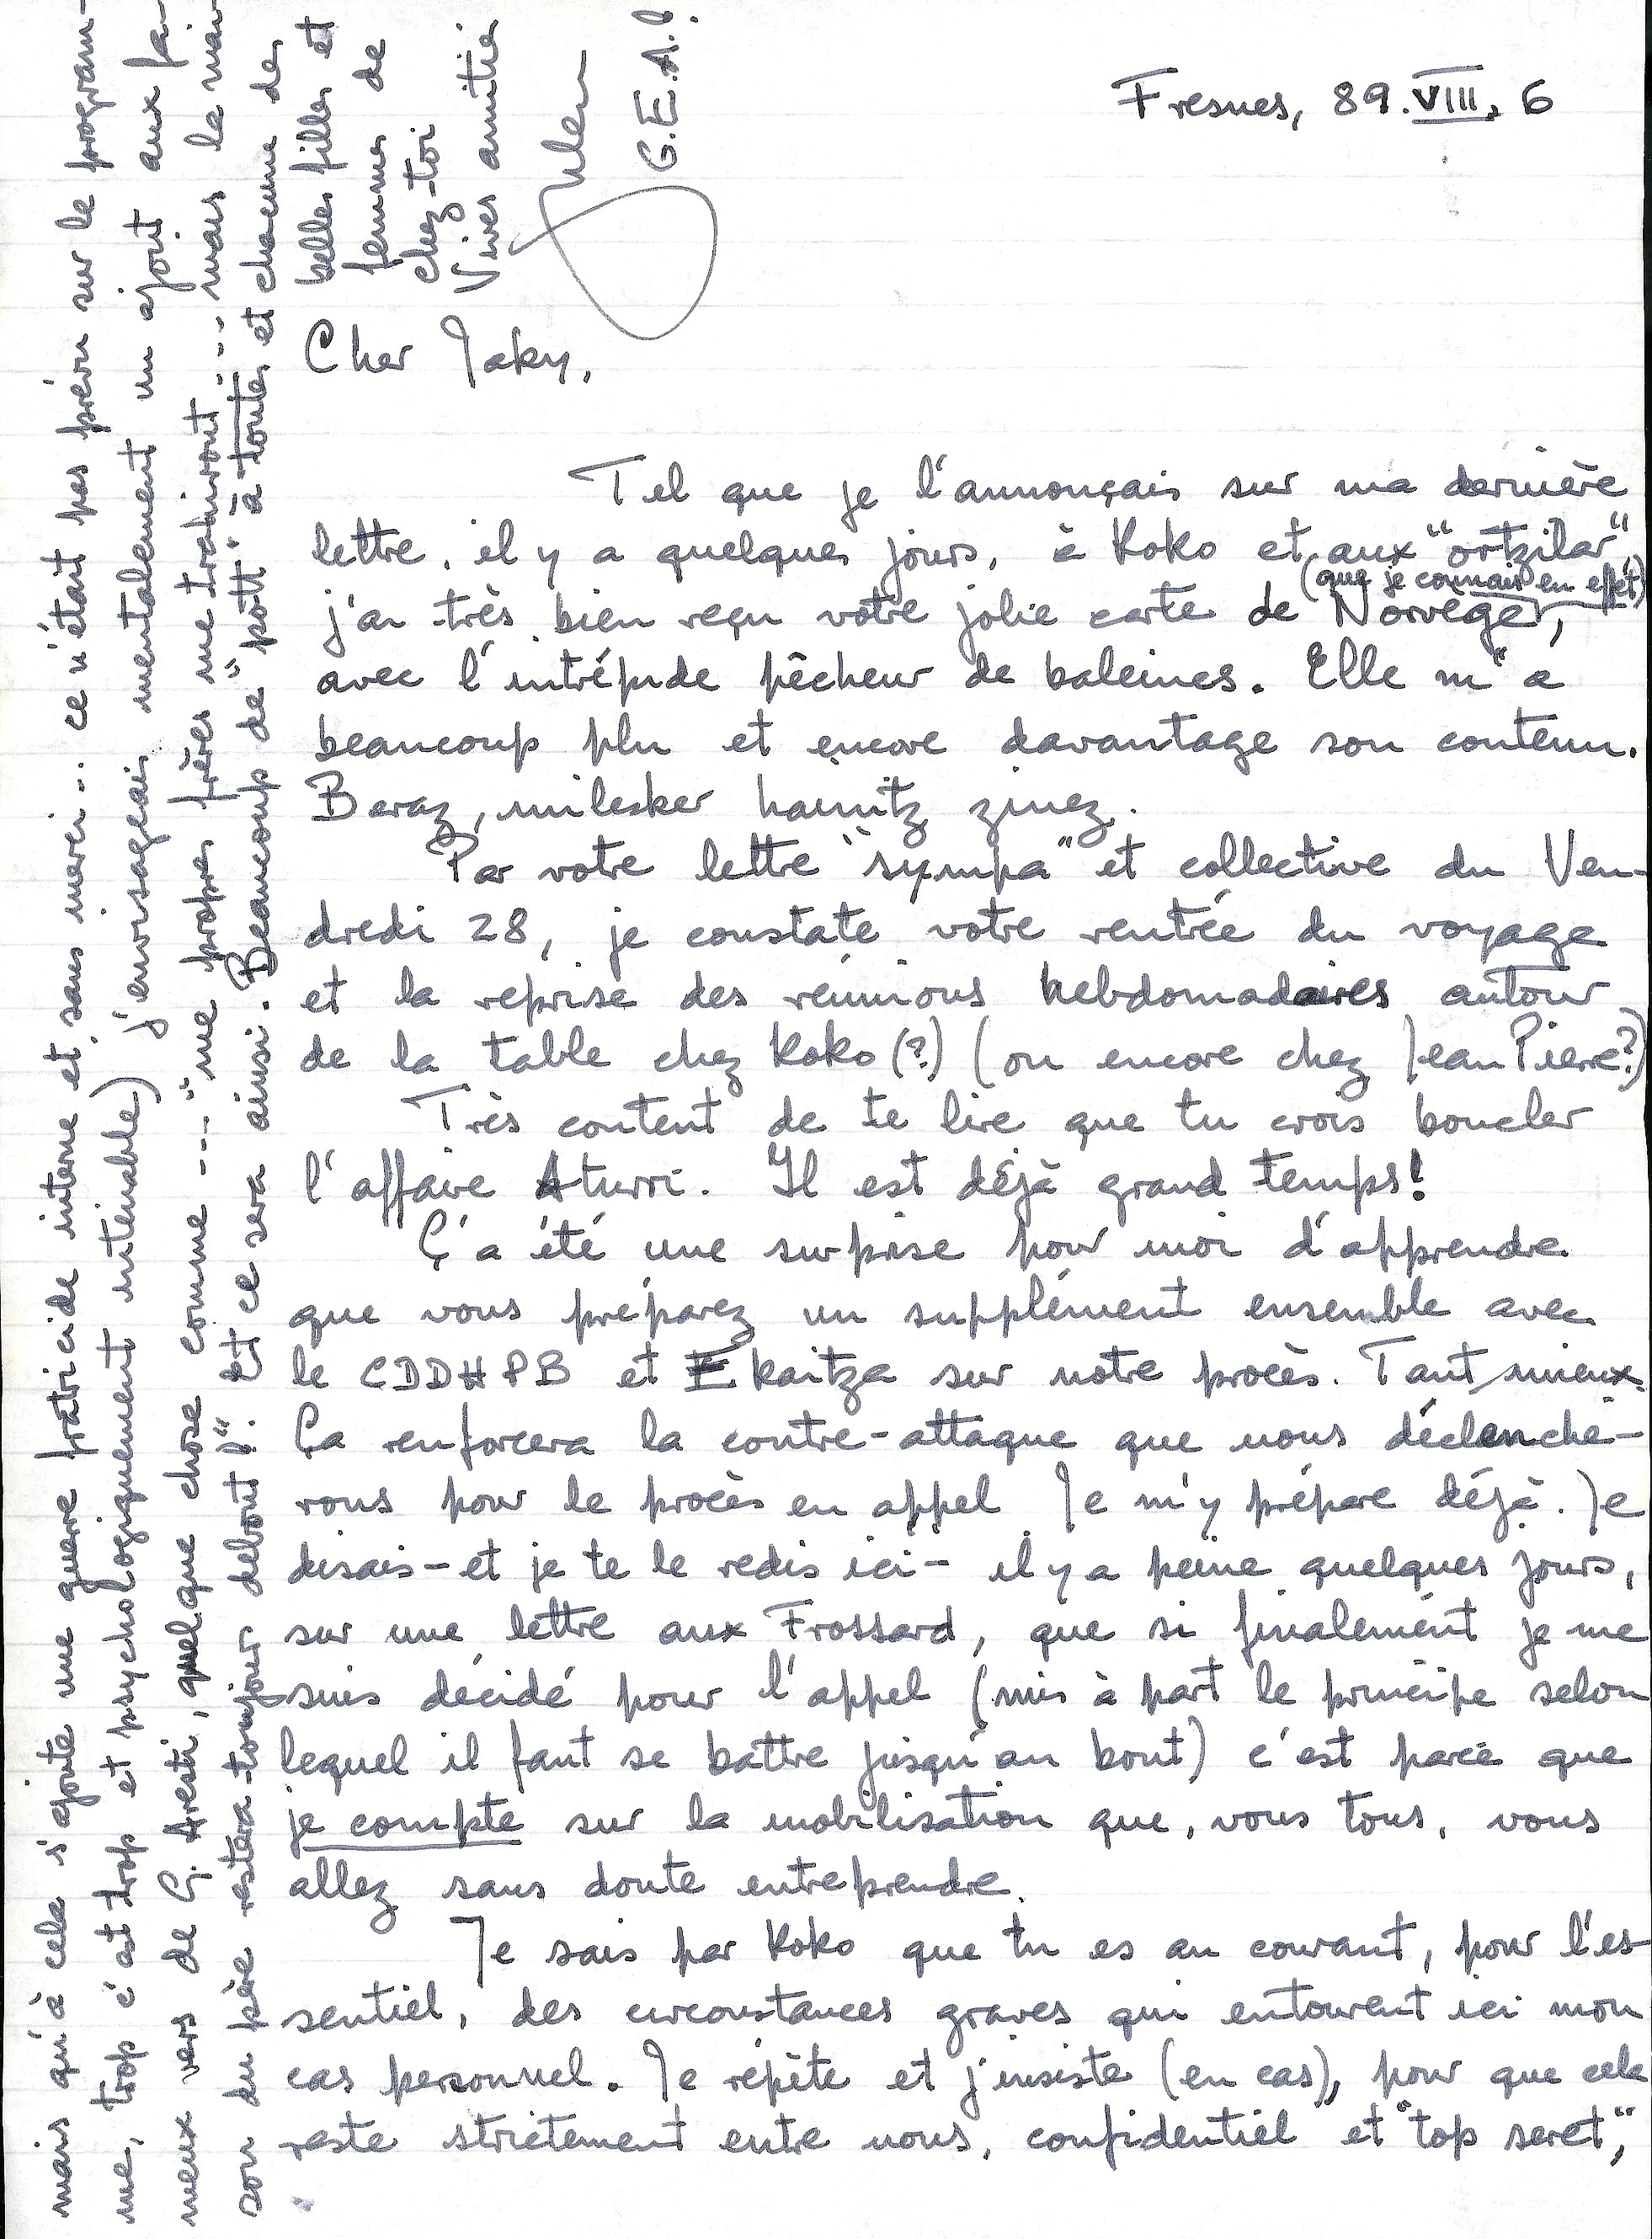 Fresnes, 89.VIII.6
Cher Jaky,
Tel que je l'annonçais sur ma dernière
lettre, il y a quelques jours, à Koko et aux "ortzilar",
(que je connais en effet)
j'ai très bien reçu votre jolie carte de Norvège,
avec l'intrépide pêcheur de baleines. Elle m'a
beaucoup plu et encore davantage son contenu.
Beraz, milesker hainitz zinez.
Par votre lettre "sympa" et collective du Ven-
dredi 28, je constate votre rentrée du voyage
et la reprise des réunions hebdomadaires autour
de la table chez Koko (?) (ou encore chez Jean Pierre?)
Très content de te lire que tu crois boucler
l'affaire Aturri. Il est déjà grand temps!
Ç'a été une surprise pour moi d'apprendre
que vous préparez un supplément ensemble avec
le CDDHPB et Ekaitza sur notre procès. Tant mieux.
Ça renforcera la contre-attaque que nous déclenche-
rons pour le procès en appel. Je m'y prépare déjà. Je
disais - et je te le redis ici - il y a peine quelques jours,
sur une lettre aux Frossard, que si finalement je me
suis décidé pour l'appel (mis à part le principe selon
lequel il faut se battre jusqu'au bout) c'est parce que
je compte sur la mobilisation que, vous tous, vous
allez sans doute entreprendre.
Je sais par Koko que tu es au courant, pour l'es-
sentiel, des circonstances graves qui entourent ici mon
cas personnel. Je répète et j'insiste (en cas), pour que cela
reste strictement entre nous, confidentiel et "top seret",
mais qu'à cela s'ajoute une guerre fratricide interne et sans merci... ce n'était pas prévu sur le program-
me, trop c'est trop et psychologiquement intenable) j'envisageais mentalement un ajout aux fa-
meux vers de G. Aresti, quelque chose comme ... "me propres frères me trahiront ... mais la mai-
son du père restera toujour debout!". Et ce sera ainsi. Beaucoup de "pott" à toutes et chacune des
belles filles et
femmes de
chez-toi
Vives amitié
G.E.A.!